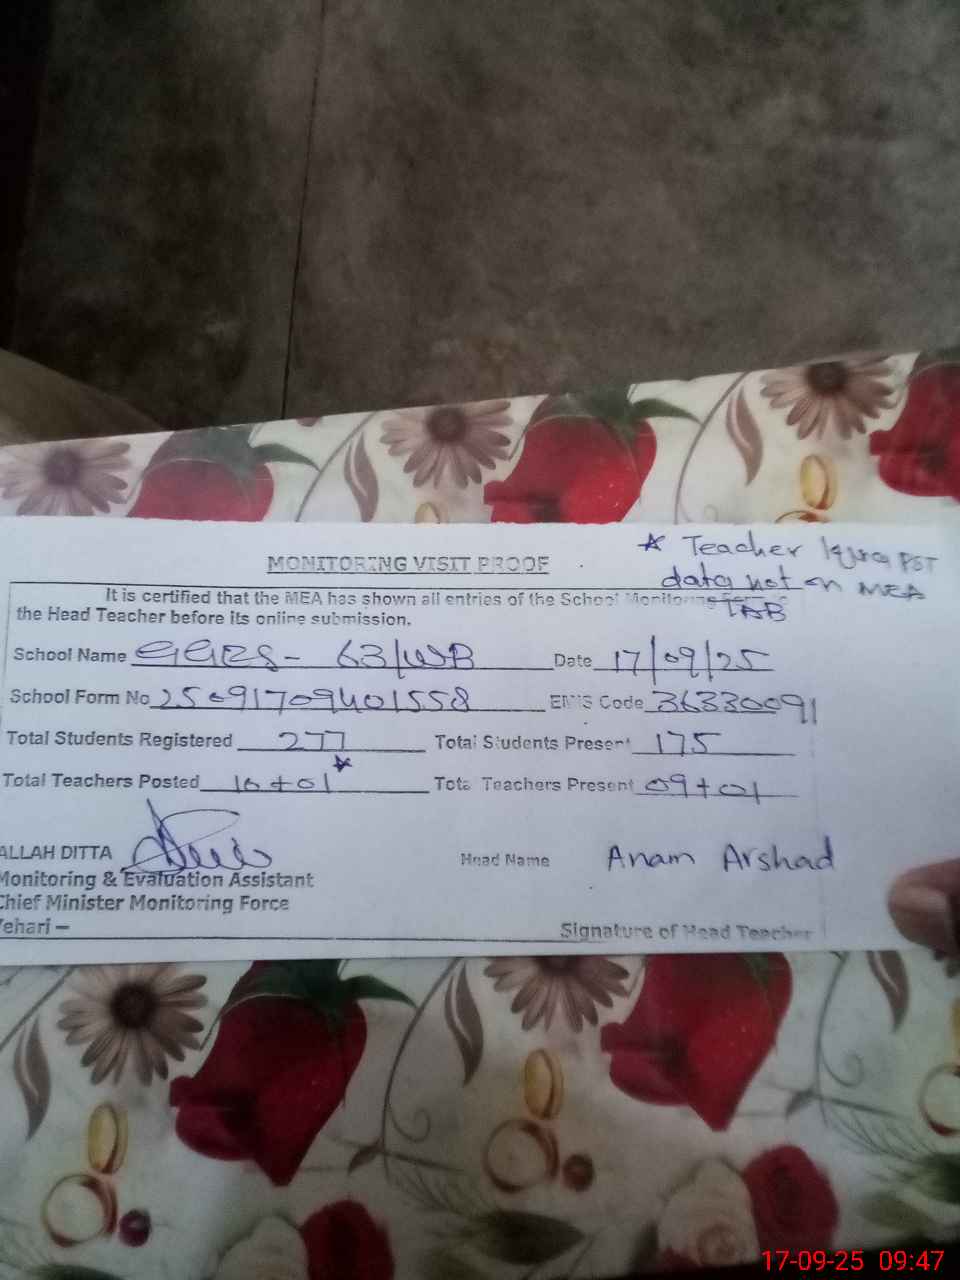 MONITORING VISIT PROOF
* Teacher Iqra PST
data not on MEA
TAB
It is certified that the MEA has shown all entries of the School Monitoring
the Head Teacher before its online submission.
School Name GGES - 63/WB Date 17/09/25
School Form No 25091709401558 EMIS Code 36330091
Total Students Registered 277 Total Students Present 175
Total Teachers Posted 10+01* Total Teachers Present 09+01
ALLAH DITTA Head Name Anam Arshad
Monitoring & Evaluation Assistant
Chief Minister Monitoring Force
Vehari – Signature of Head Teacher
17-09-25 09:47